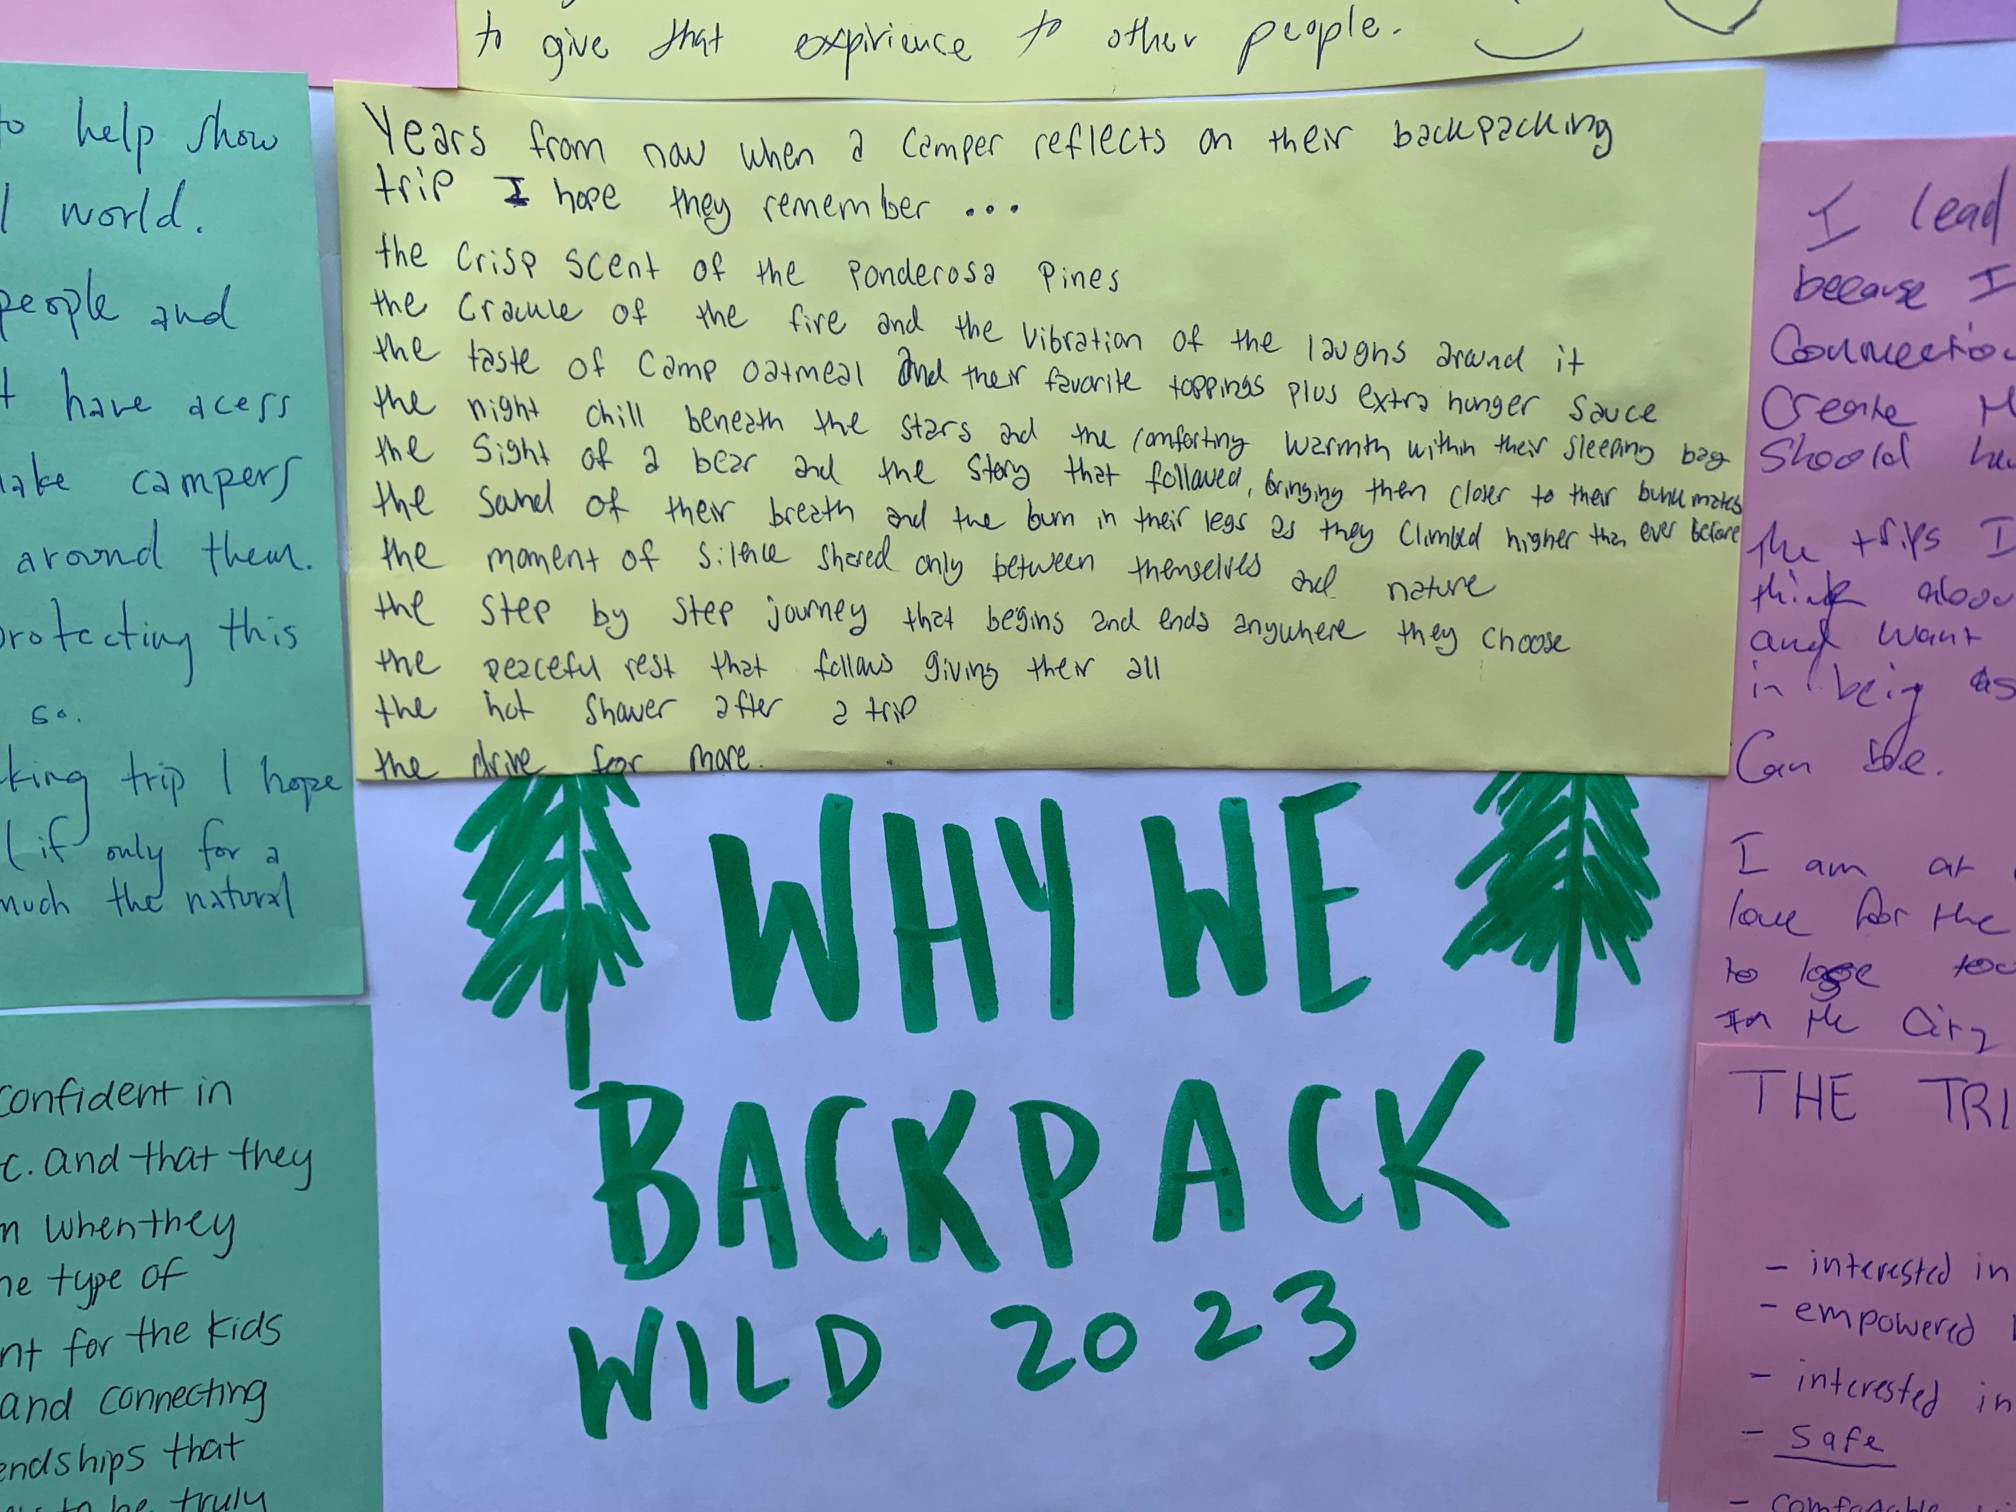 to give that expirience to other people.
Years from now when a camper reflects on their backpacking
trip I hope they remember ...
the crisp scent of the ponderosa pines
the crackle of the fire and the vibration of the laughs around it
the taste of camp oatmeal and their favorite toppings plus extra hunger sauce
the night chill beneath the stars and the comforting warmth within their sleeping bag
the sight of a bear and the story that followed, bringing them closer to their bunkmates
the sound of their breath and the burn in their legs as they climbed higher than ever before
the moment of silence shared only between themselves and nature
the step by step journey that begins and ends anywhere they choose
the peaceful rest that follows giving their all
the hot shower after a trip
the drive for more.
WHY WE
BACKPACK
WILD 2023
to help show
world.
people and
have acess
campers
around them.
protecting this
so.
trip I hope
(if only for a
much the natural
confident in
and that they
when they
type of
for the kids
and connecting
that
to be truly
I lead
because I
Create
Should
the trips I
think
and want
in being as
Can be.
I am at
love for the
to lose
In the City
THE
- interested in
- empowered
- interested in
- safe